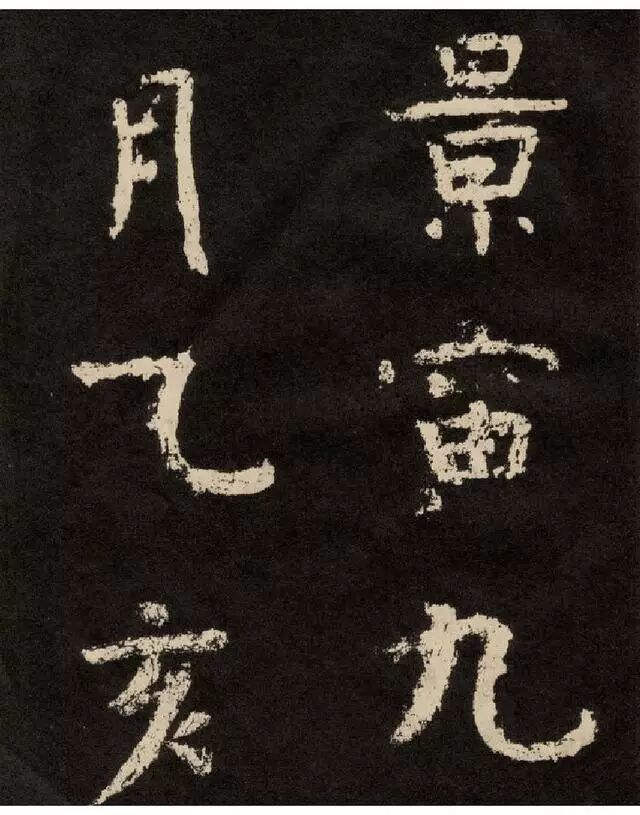 景寅九
月乙亥